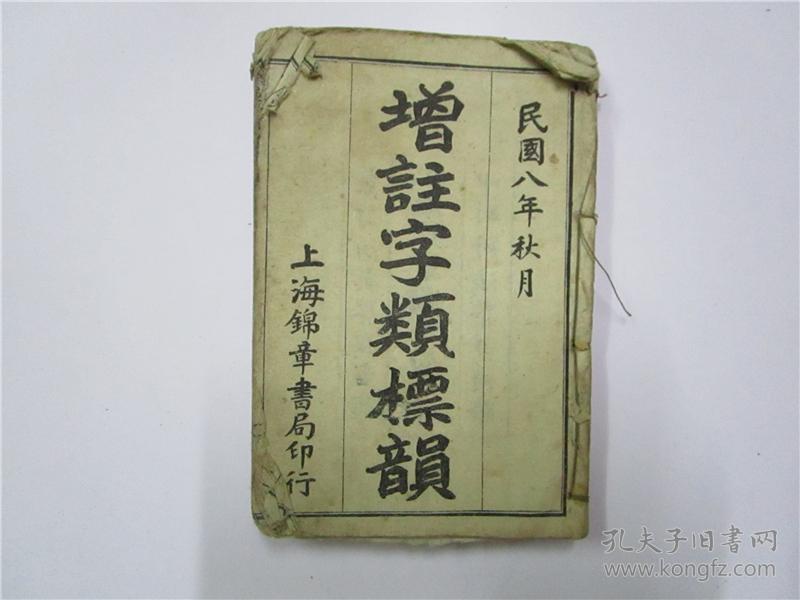 民國八年秋月
增註字類標韻
上海錦章書局印行
孔夫子旧書网
www.kongfz.com